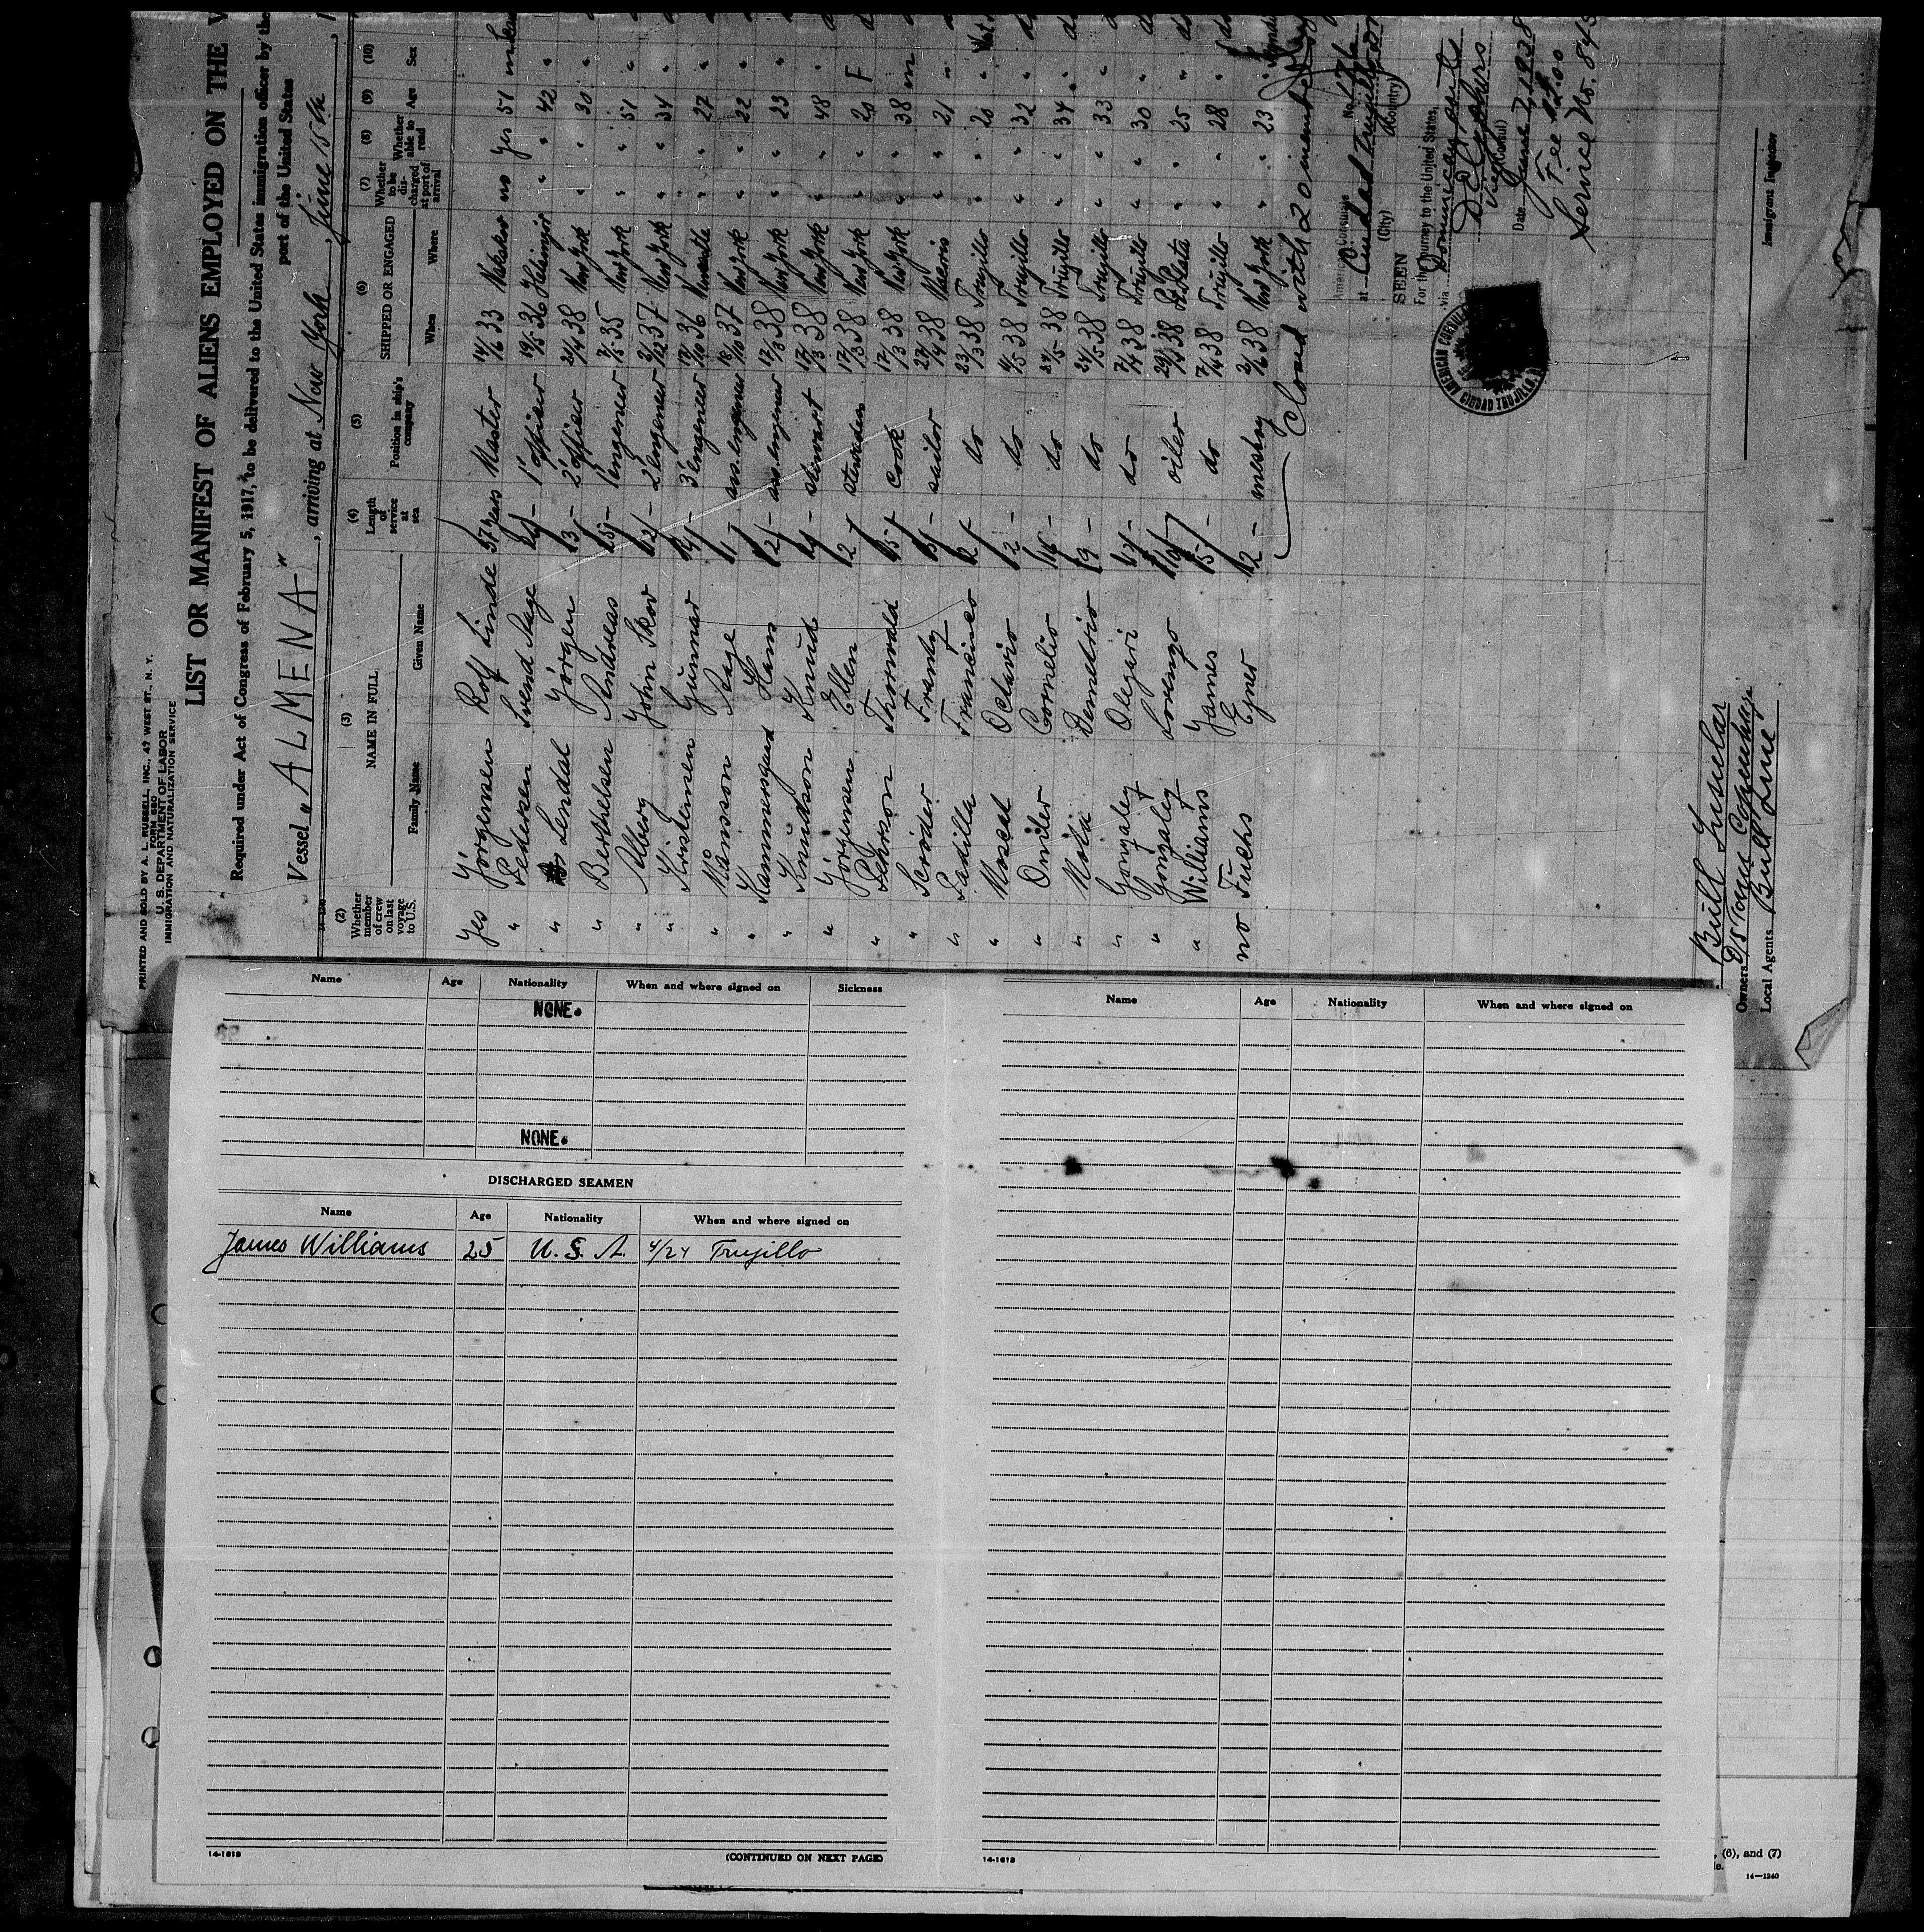 PRINTED AND SOLD BY A. L. RUSSELL, INC., 47 WEST ST., N. Y.
FORM 680
U. S. DEPARTMENT OF LABOR
IMMIGRATION AND NATURALIZATION SERVICE
LIST OR MANIFEST OF ALIENS EMPLOYED ON THE V
Required under Act of Congress of February 5, 1917, to be delivered to the United States immigration officer by the
port of the United States
Vessel "ALMENA", arriving at New York, June 15th, 1
(2) Whether member of crew on last voyage to U.S.
(3) NAME IN FULL
Family Name Given Name
(4) Length of service at sea
(5) Position in ship's company
(6) SHIPPED OR ENGAGED
When Where
(7) Whether to be discharged at port of arrival
(8) Whether able to read
(9) Age
(10) Sex
Yes Jörgensen Rolf Linde 37 years Master 14/6 33 Nakskov no yes 51 m
" Pedersen Svend Aage 1' officer 19/5 36 Helsingör " " 42 "
" Lendal Jörgen 13 - 2' officer 21/4 38 New York " " 30 "
" Berthelsen Andreas 1 engeneer 2/5 35 New York " " 51 "
" Alberg John Skov 12 - 2' engeneer 2/12 37 New York " " 34 "
" Kristensen Gunnar 3' engeneer 17/10 36 Newcastle " " 27 "
" Mânsson Aage 11 ass. engeneer 18/10 37 New York " " 22 "
" Kammersgaard Hans 2 - ass. engeneer 17/3 38 New York " " 23 "
" Knudson Knud stewart 17/3 38 New York " " 48 "
" Jörgensen Ellen 2 17/3 38 New York " " 20 F
" Peterson Thorvald 15 cook 17/3 38 New York " " 38 m
" Scröder Frantz sailor 27/4 38 " " 21 "
" Padilla Francisco do 23/3 38 Trujillo " " 20 "
" Moscat Octavio 2 - do 4/5 38 Trujillo " " 32 "
" Cornelio do 24/5 38 Trujillo " " 34 "
" Mota Demetrio 9 - do 24/5 38 Trujillo " " 33 "
" Gonzalez Olegari do 7/4 38 Trujillo " " 30 "
" Gonzalez Lorenzo oiler 29/4 38 Pt. Plata " " 25 "
" Williams James 5 - do 7/4 38 Trujillo " " 28 "
no Fuchs Ejner 2 - messboy 2/6 38 New York " " 23 "
Closed with 20 members
American Consulate No. 176
at Ciudad Trujillo D.R.
(City) (Country)
SEEN
For the journey to the United States,
via Dominican ports
Vice Consul
Date June 7, 1938
Fee $2.00
Service No. 845
AMERICAN CONSULATE CIUDAD TRUJILLO, D.R.
Bull Insular
Owners
Local Agents Bull Line
Immigrant Inspector
Name Age Nationality When and where signed on Sickness
NONE.
NONE.
DISCHARGED SEAMEN
Name Age Nationality When and where signed on
James Williams 25 U. S. A. 4/24 Trujillo
14-1613
(CONTINUED ON NEXT PAGE)
Name Age Nationality When and where signed on
14-1613
, (6), and (7)
14-1240